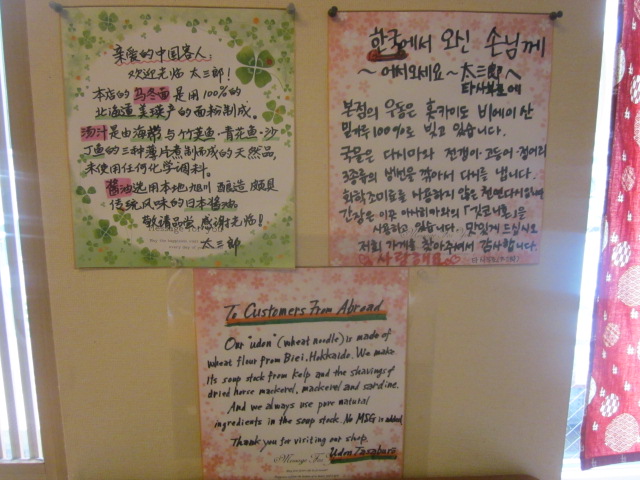 亲爱的中国客人:
欢迎光临 太三郎!
本店的 乌冬面 是用 100%的
北海道 美瑛产的 面粉制成。
汤汁是由海带与竹荚鱼·青花鱼·沙
丁鱼的三种薄片煮制而成的天然品,
未使用任何化学调料。
酱油选用本地旭川 酿造 颇具
传统风味的日本酱油
敬请品尝 感谢光临!
太三郎
한국에서 오신 손님께
~어서와세요~太三郎へ
본점의 우동은 홋카이도 비에이 산
밀가루100%로 빚고 있습니다.
국물은 다시마와 전갱이·고등어·정어리
3종류의 말린것을 깎아서 다시를 냅니다.
화학조미료를 사용하지 않은 천연다시입니다
간장은 이곳 아사히카와의
사용하고 있습니다. 맛있게 드십시오
저희 가게를 찾아주셔서 감사합니다.
사랑해요
To Customers From Abroad
Our "udon" (wheat noodle) is made of
wheat flour from Biei, Hokkaido. We make
its soup stock from kelp and the shavings of
dried horse mackerel, mackerel and sardine.
And we always use pure natural
ingredients in the soup stock. No MSG is added
Thank you for visiting our shop.
Udon Tasaburo